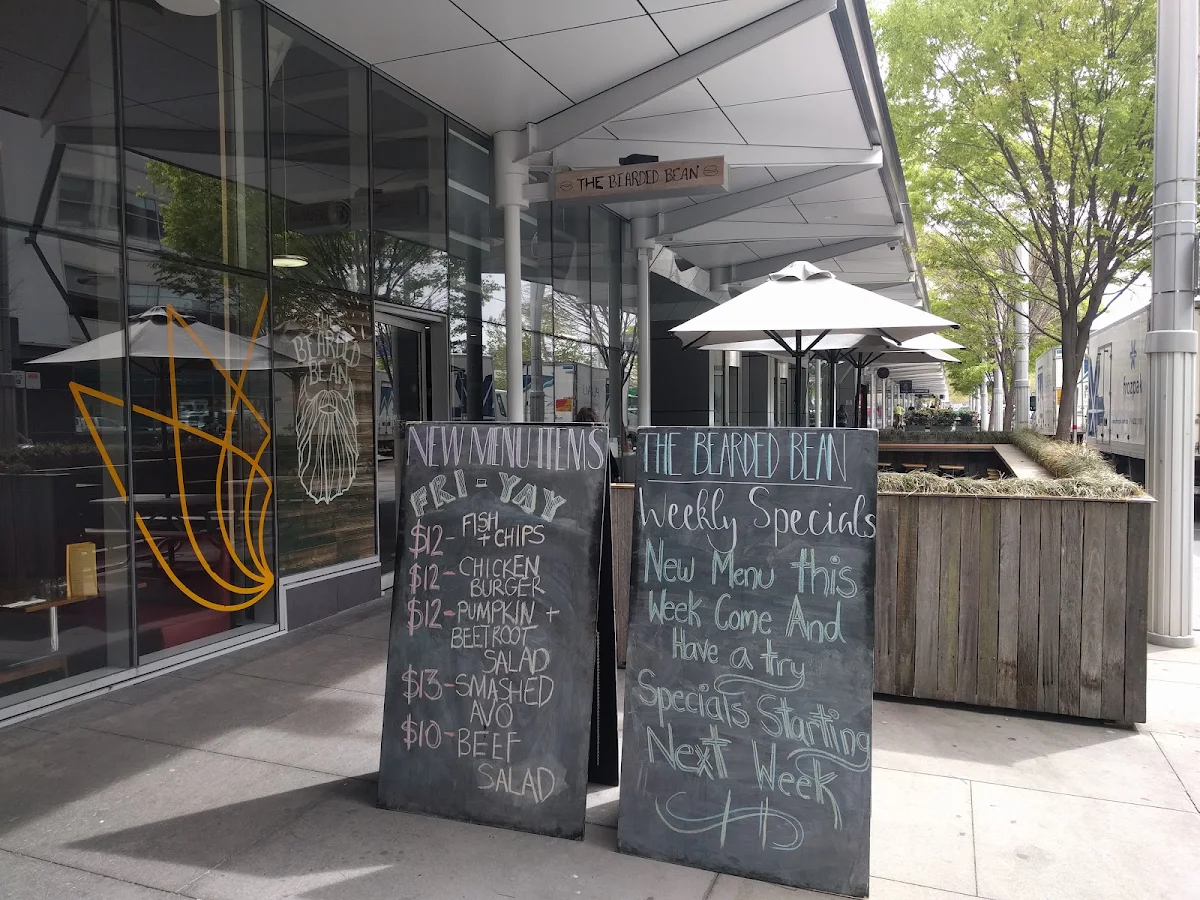 THE BEARDED BEAN
THE
BEARDED
BEAN
NEW MENU ITEMS
FRI-YAY
$12- FISH
+ CHIPS
$12- CHICKEN
BURGER
$12- PUMPKIN +
BEETROOT
SALAD
$13- SMASHED
AVO
$10- BEEF
SALAD
THE BEARDED BEAN
Weekly Specials
New Menu this
Week Come And
Have a try
Specials Starting
Next Week